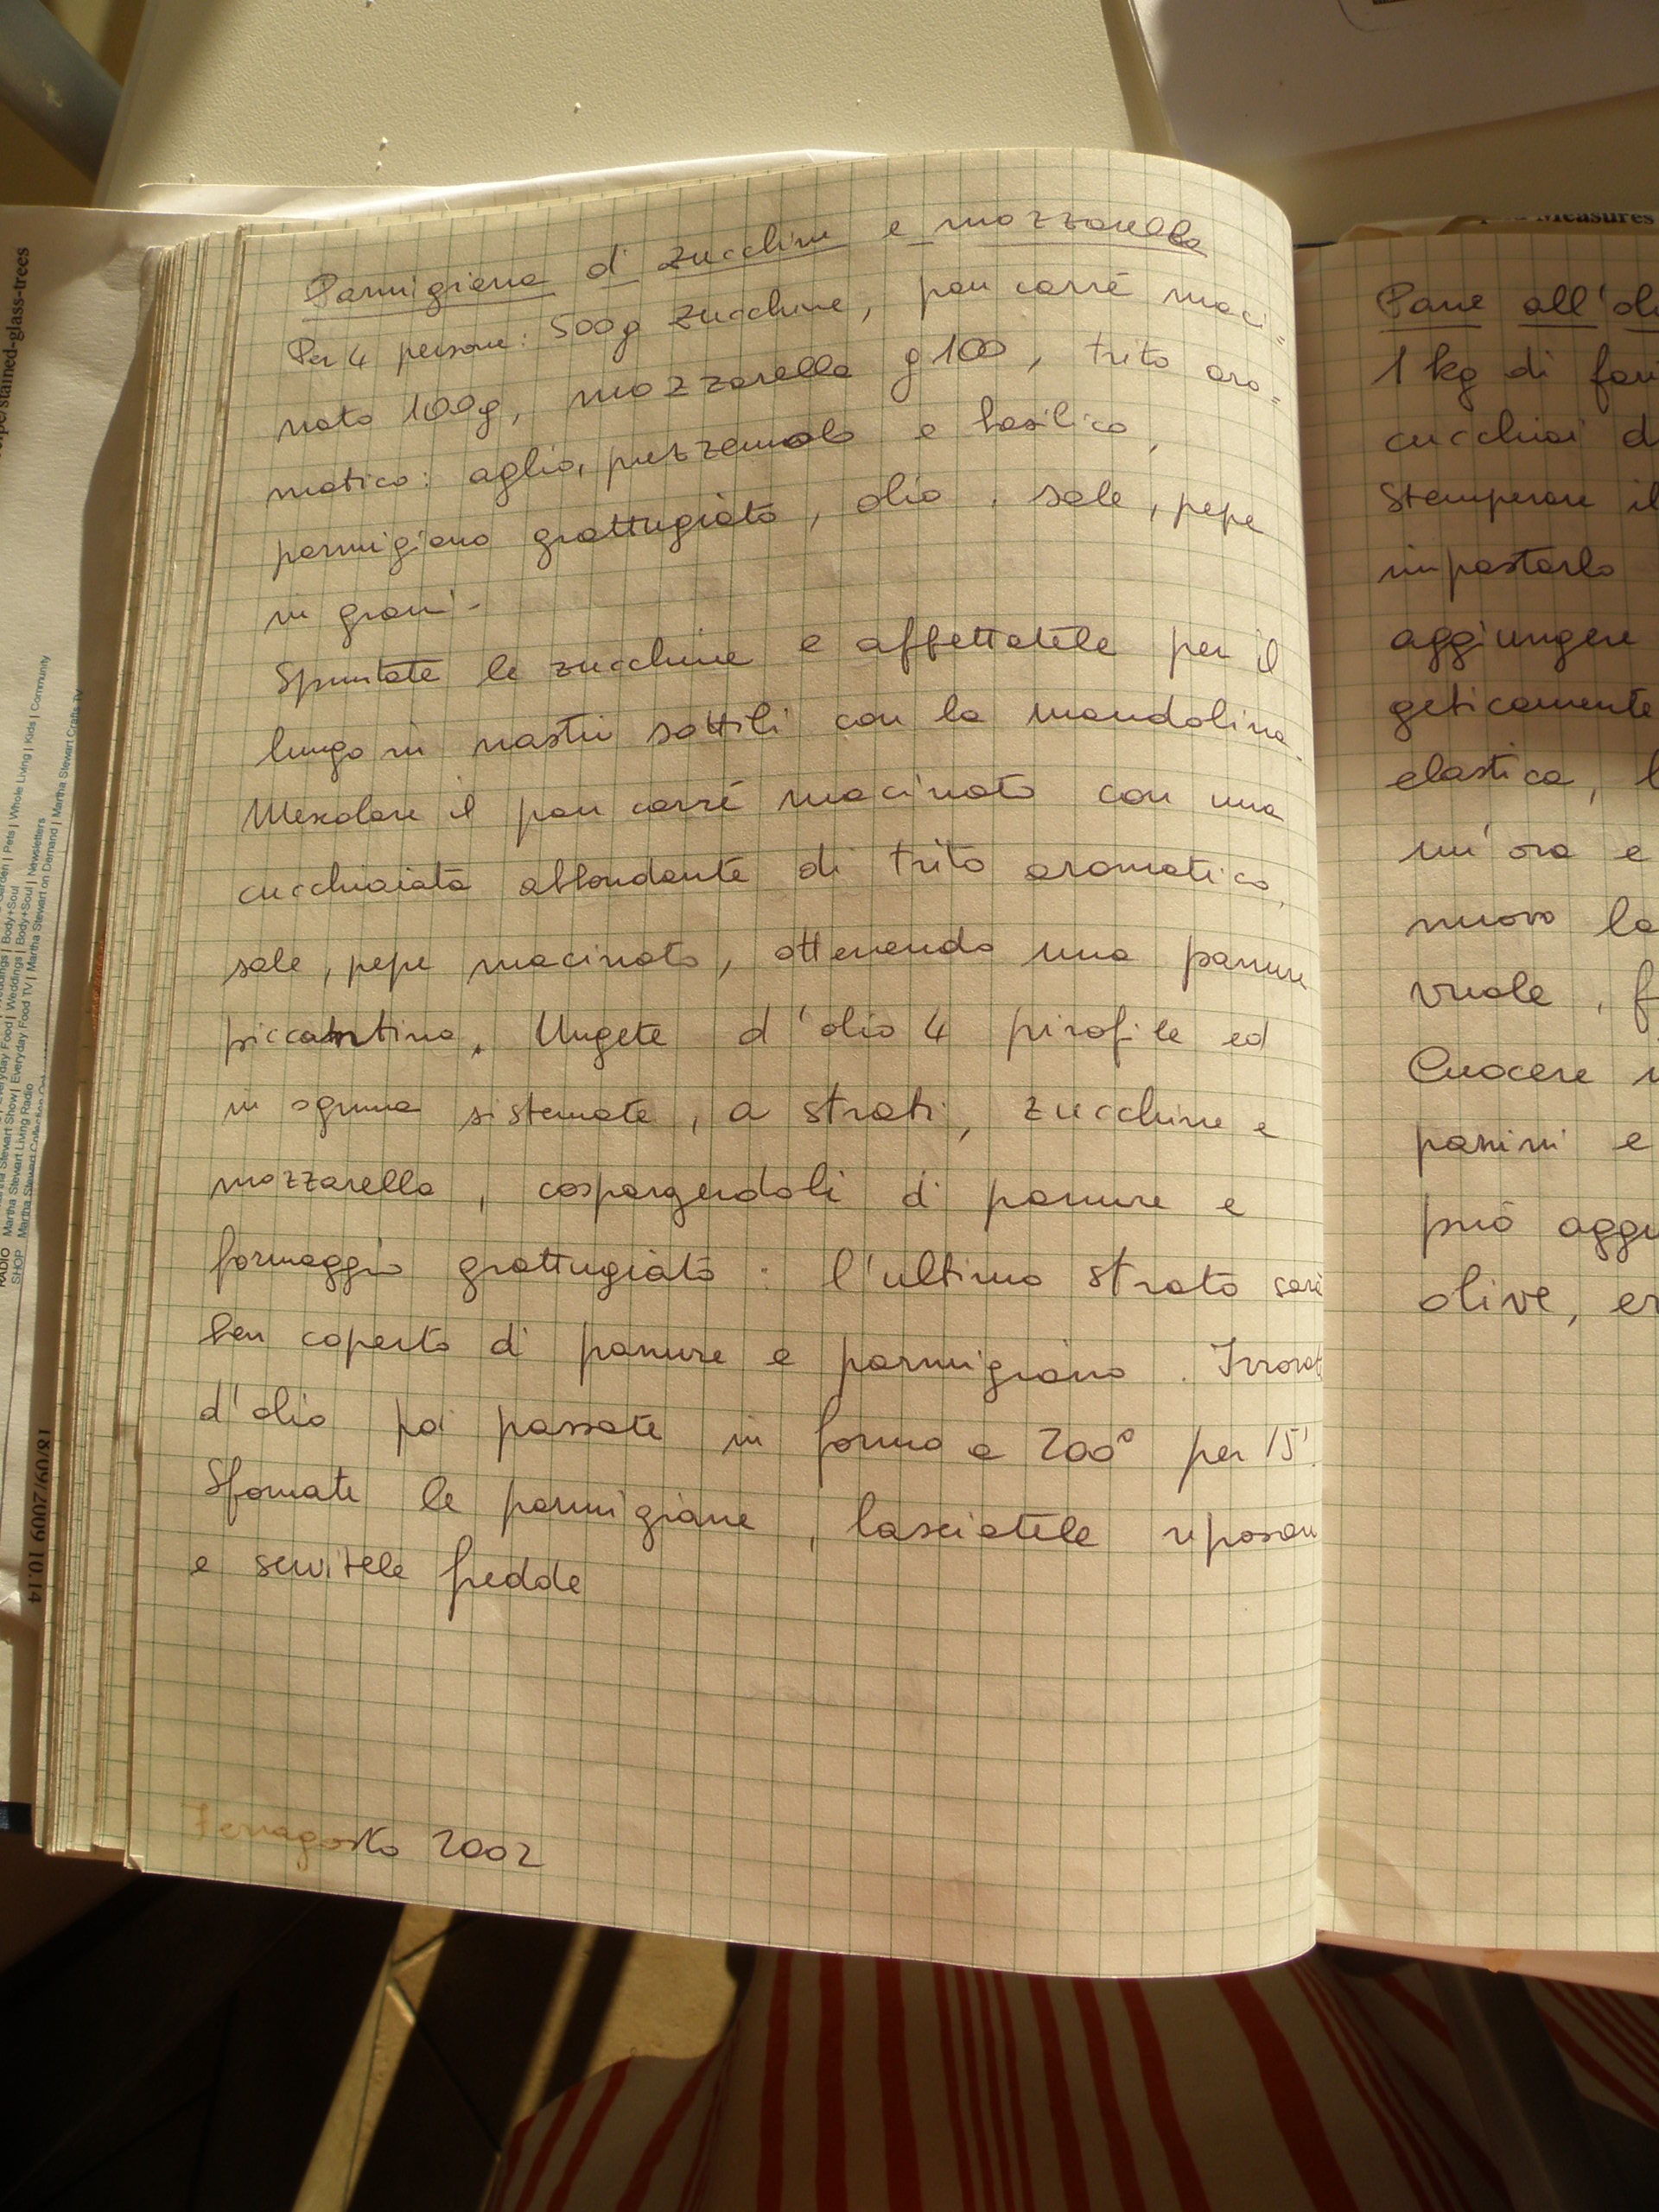 Parmigiana di zucchine e mozzarella
Per 4 persone: 500g zucchine, pan carré maci=
nato 100g, mozzarella g 100, trito aro=
matico: aglio, prezzemolo e basilico,
parmigiano grattugiato, olio, sale, pepe
in grani.
Spuntate le zucchine e affettatele per il
lungo in nastri sottili con la mandolina.
Mescolare il pan carré macinato con una
cucchiaiata abbondante di trito aromatico,
sale, pepe macinato, ottenendo una panure
piccantina. Ungete d'olio 4 pirofile ed
in ognuna sistemate, a strati, zucchine e
mozzarella, cospargendoli di panure e
formaggio grattugiato: l'ultimo strato sarà
ben coperto di panure e parmigiano. Irrorat
d'olio poi passate in forno a 200° per 15'.
Sfornate le parmigiane, lasciatele riposare
e servitele fredde
Ferragosto 2002
Pane all'ol
1 kg di far
cucchiai d
Stemperare il
impastarlo
aggiungere
geticamente
elastica, l
un'ora e
nuovo la
vuole, f
Cuocere
panini e
può aggi
olive, er
Measures
stained-glass-trees
Pets | Whole Living | Kids | Community
Weddings | Body+Soul | Newsletters
Everyday Food TV | Martha Stewart on Demand | Martha Stewart Crafts TV
RADIO Martha Stewart Living Radio
SHOP
18/09/2009 10.14